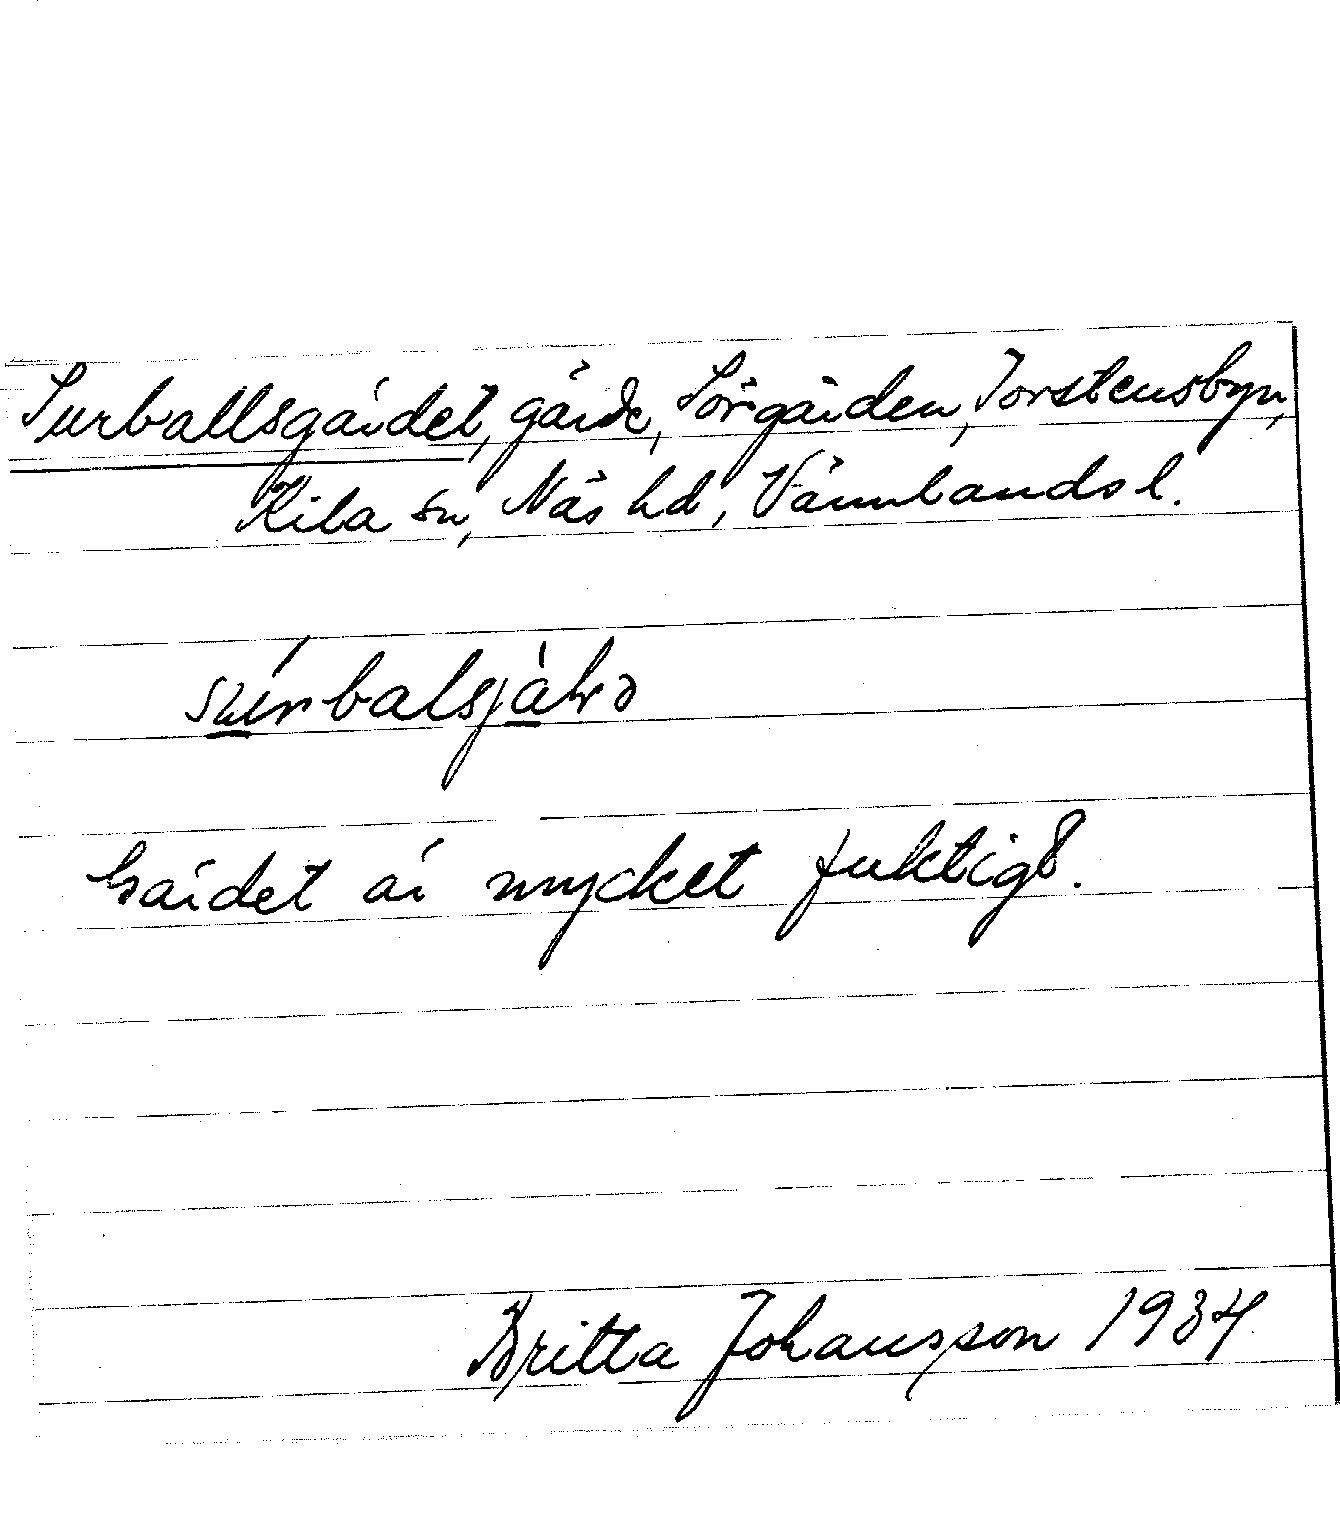 Surballsgärdet, gärde, Sörgården, Torstensbyn,
Kila sn, Näs hd, Värmlands l.
sú̲rbalsjà̲ḷə
Gärdet är mycket fuktigt.
Britta Johansson 1934